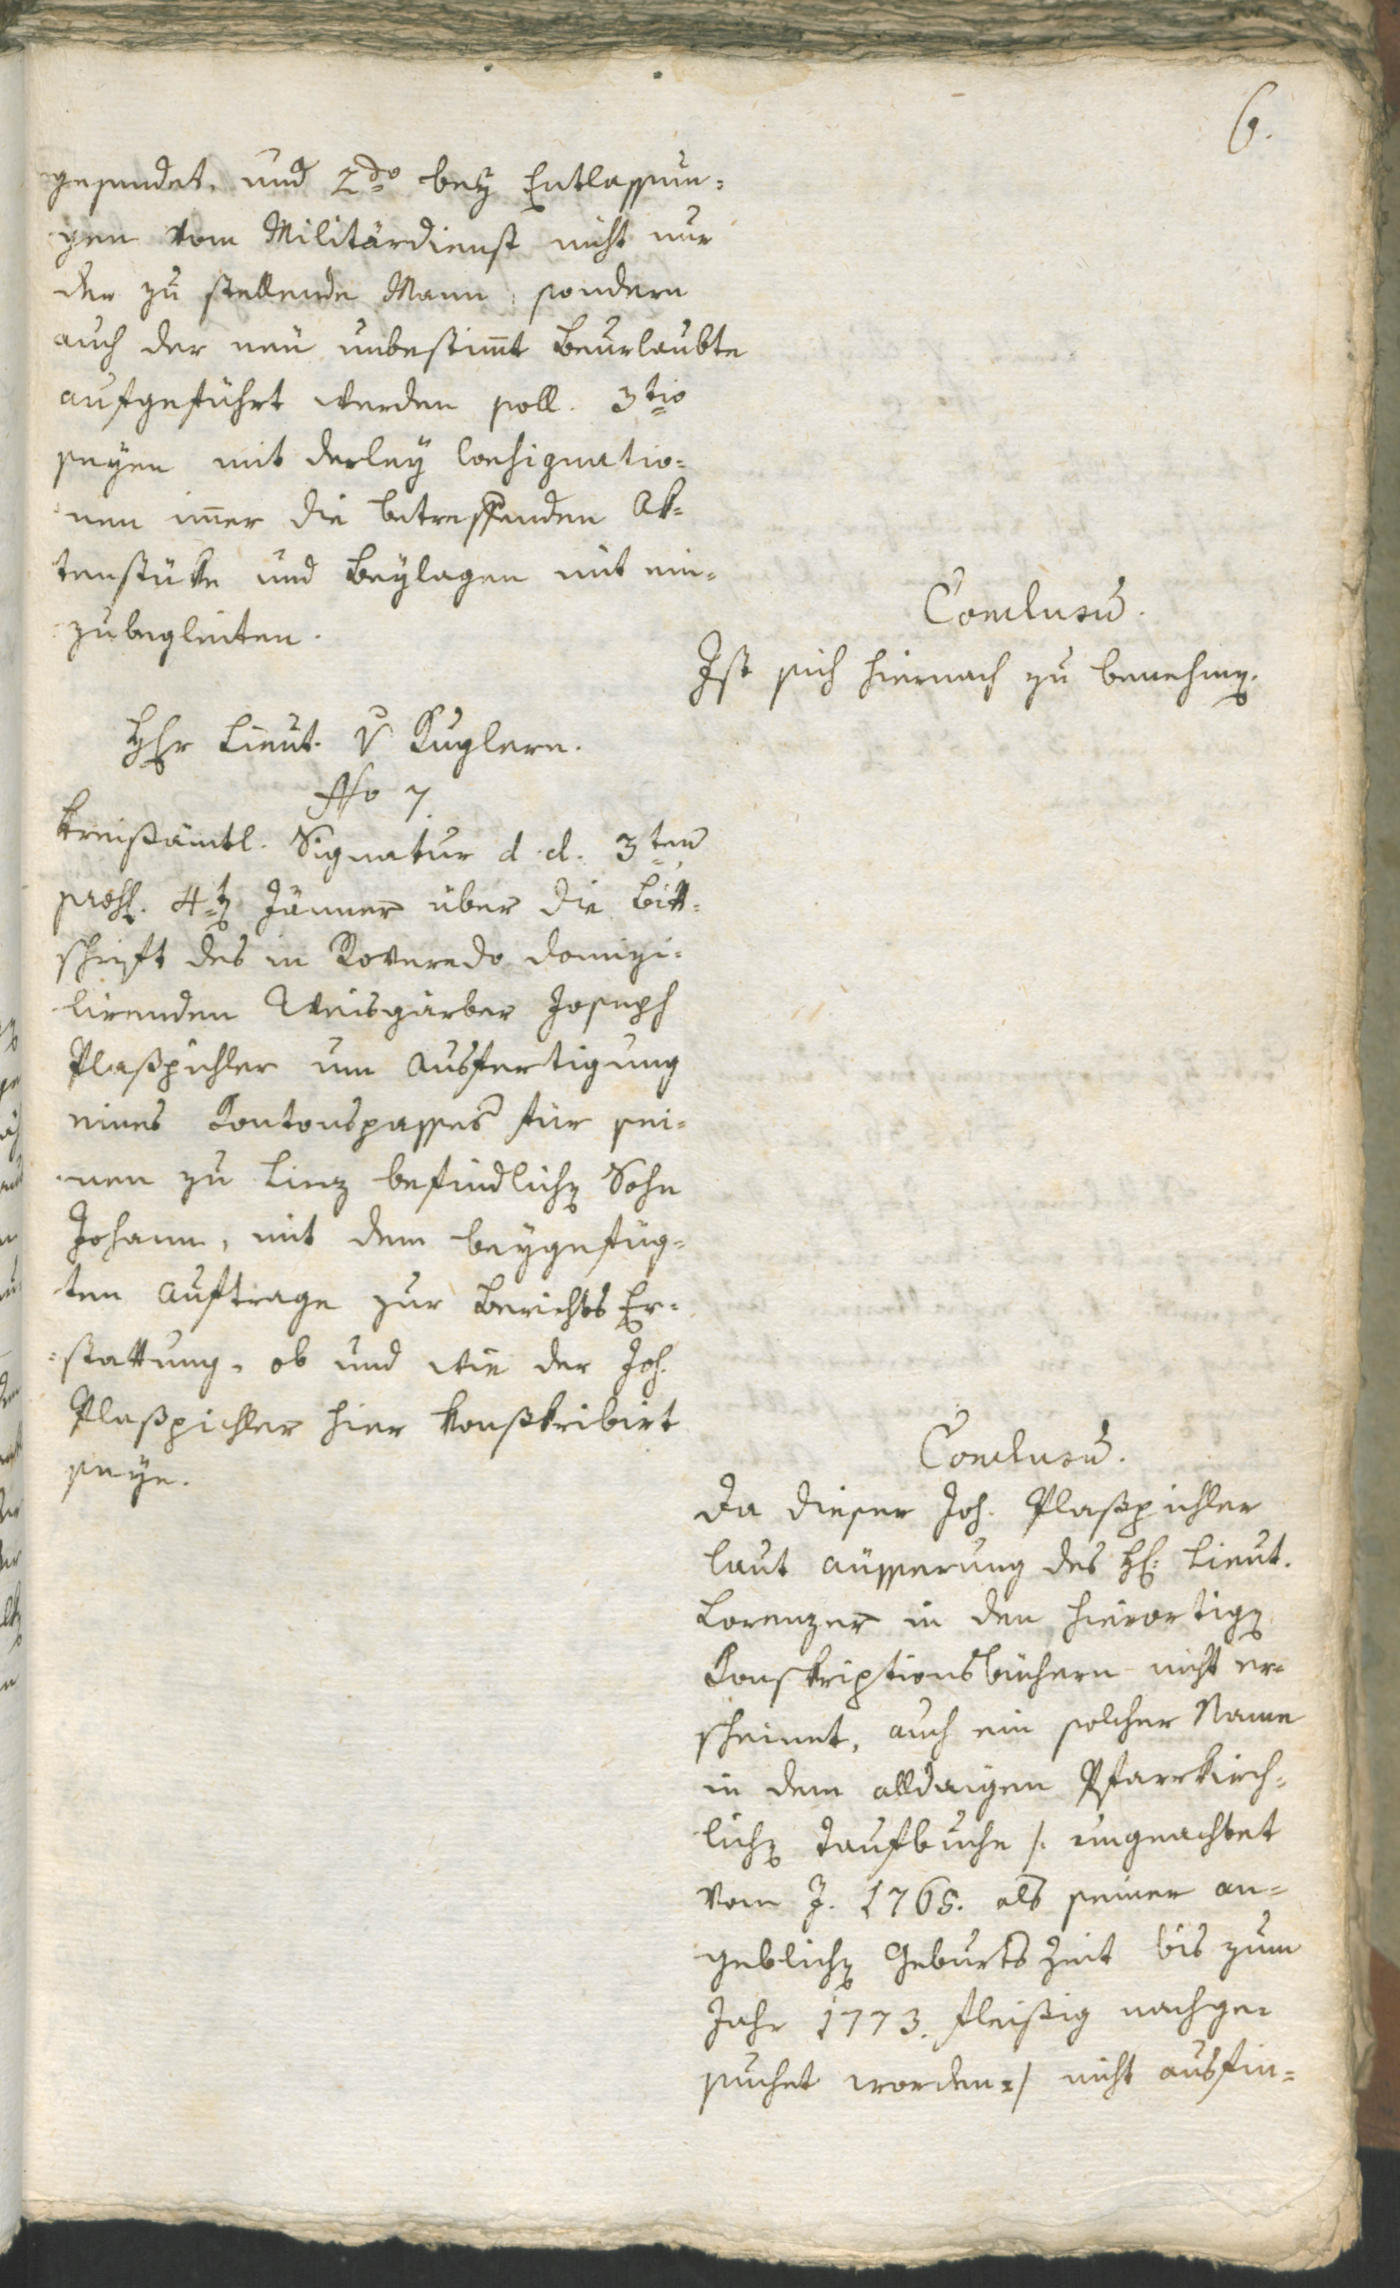 6.
gesendet, und 2do bey Entlassun=
gen vom Militärdienst nicht nur
der zu stellende Mann, sondern
auch der neu unbestim̄t Beurlaubte
aufgeführt werden soll. 3tio
seyen mit derley Consignatio=
nen im̄er die betreffenden Ak=
tenstüke und Beylagen mit ein=
zubegleiten.
Conclusū.
Ist sich hiernach zu benehmen.
HHr Lieut. v Kuglern.
No 7.
Kreisämtl. Signatur d. d. 3ten
praes. 4ten Jänner über die Bitt=
schrift des in Roveredo domizi=
lirenden Weisgärber Joseph
Plaßpichler um Ausfertigung
eines Kantonspasses für sei=
nen zu Linz befindlichen Sohn
Johann, mit dem beygefüg=
ten Auftrage zur Berichts Er=
=stattung, ob und wie der Joh.
Plaßpichler hier konskribirt
seye.
Conclusū.
Da dieser Joh. Plaßpichler
laut äusserung des H: Lieut.
Lorenzer in den hierortigen
Konskriptionsbüchern nicht er=
scheinet, auch ein solcher Name
in dem alldaigen Pfarrkirch=
lichen Taufbuche /: ungeachtet
vom J. 1768. als seiner an=
geblichen Geburts Zeit bis zum
Jahr 1773. fleißig nachge=
suchet worden :/ nicht ausfin=